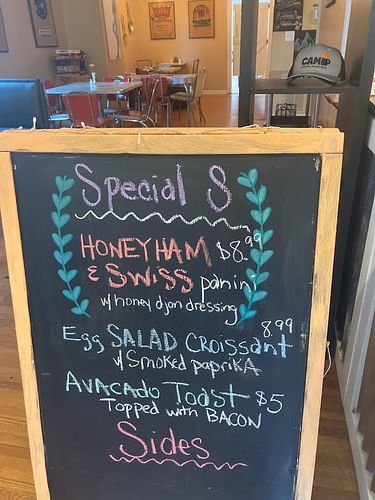 CAMP
Special S
HONEY HAM $8.99
& SWISS panini
w/ honey djon dressing
Egg SALAD CROISSANT 8.99
w/ Smoked paprika
AVACADO TOAST $5
Topped with BACON
Sides